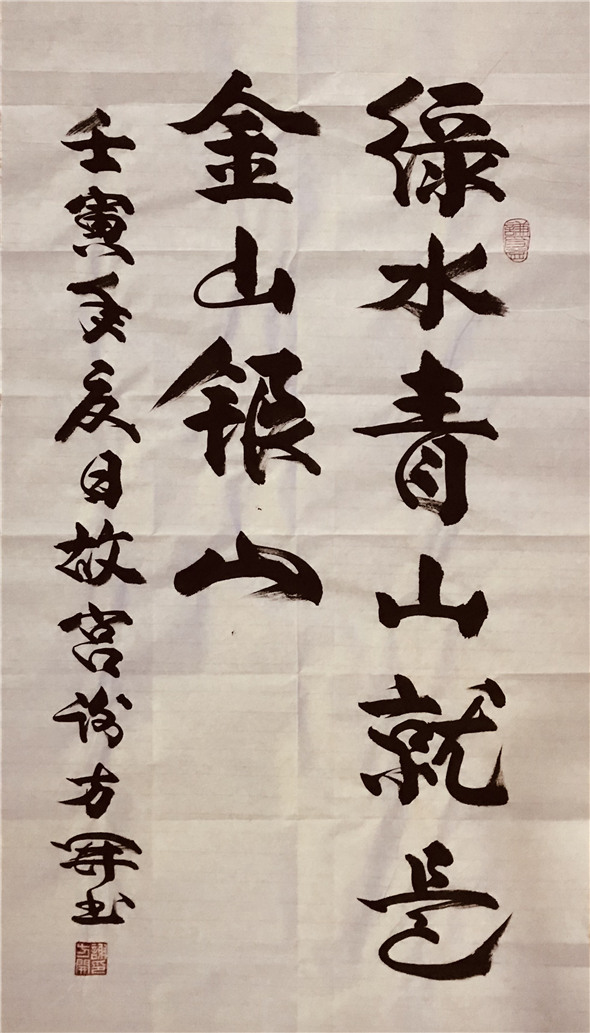 绿水青山就是
金山银山
壬寅年夏日故宫谢方開书